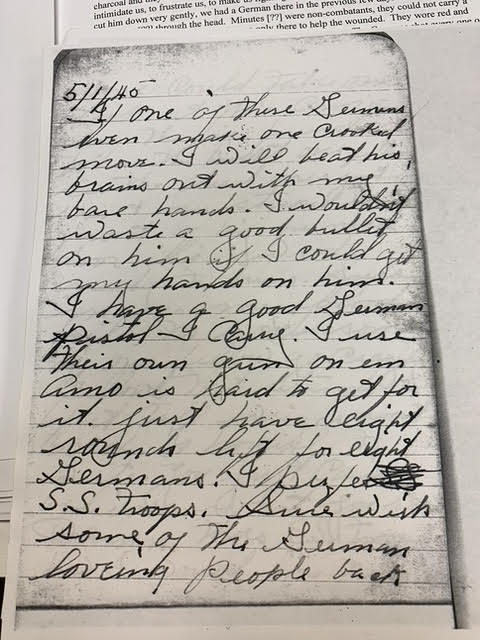 charcoal and they
intimidate us, to frustrate us, to make us
cut him down very gently, we had a German there in the previous few
through the head. Minutes [??] were non-combatants, they could not carry a
only there to help the wounded. They wore red and
5/1/45
If one of these Germans
even make one crooked
move. I will beat his
brains out with my
bare hands. I wouldn't
waste a good bullet
on him if I could get
my hands on him.
I have a good German
pistol I carry. I use
their own gun on em
Amo is hard to get for
it. just have eight
rounds left for eight
Germans. I prefer
S.S. Troops. Sure wish
some of the German
loveing people back